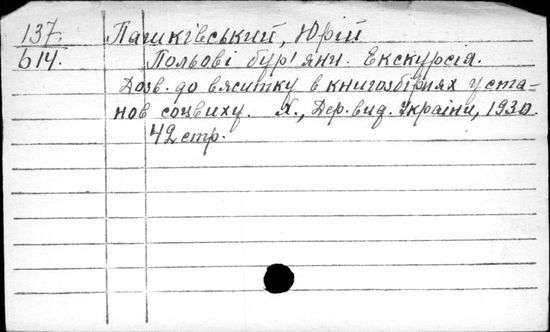 137. Пашківський, Юрій
614. Польові бур'яни. Екскурсія.
Дозв. до вжитку в книгозбірнях уста-
нов соцвиху. Х., Держ. вид. України, 1930.
42 стр.